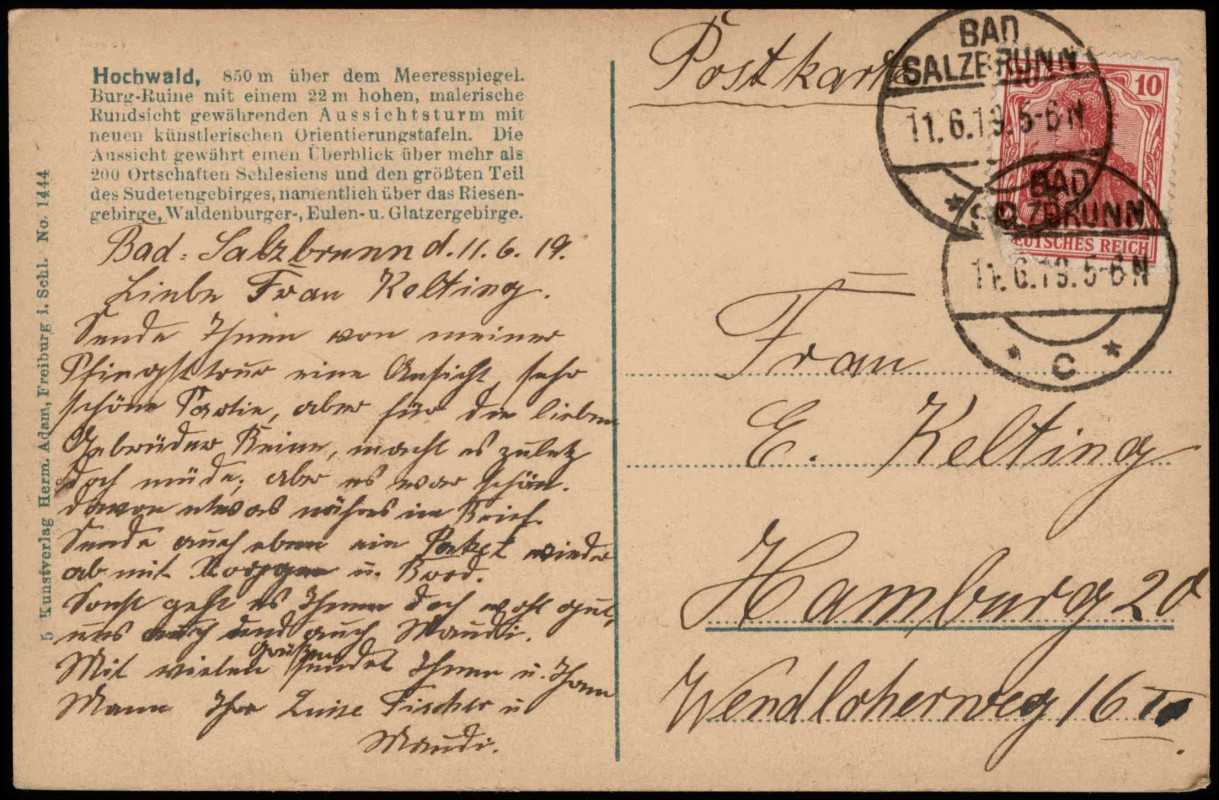 Hochwald, 850 m über dem Meeresspiegel.
Burg-Ruine mit einem 22 m hohen, malerische
Rundsicht gewährenden Aussichtsturm mit
neuen künstlerischen Orientierungstafeln. Die
Aussicht gewährt einen Überblick über mehr als
200 Ortschaften Schlesiens und den größten Teil
des Sudetengebirges, namentlich über das Riesen-
gebirge, Waldenburger-, Eulen- u. Glatzergebirge.
Bad-Salzbrunn d. 11.6.19.
Liebe Frau Kelting.
Sende Ihnen von meiner
Pfingsttour eine Ansicht, sehr
schöne Partie, aber für die lieben
Gebrüder Beine, macht es zuletz
doch müde, aber es war schön.
davon etwas nähres im Brief.
Sende auch eben ein wieder
ab mit u.
Sonst geht es Ihnen doch wohl gut,
uns und auch Maudi.
Mit vielen Grüßen sendet Ihnen u. Ihren
Mann Ihre Luise Fischer u
Maudi.
5 Kunstverlag Herm. Adam, Freiburg i. Schl. No. 1444
Postkarte
BAD
SALZBRUNN
11.6.19.5-6N
* c
10 10
DEUTSCHES REICH
BAD
SALZBRUNN
11.6.19.5-6N
* C *
Frau
E. Kelting
Hamburg 20
Wendloherweg 16